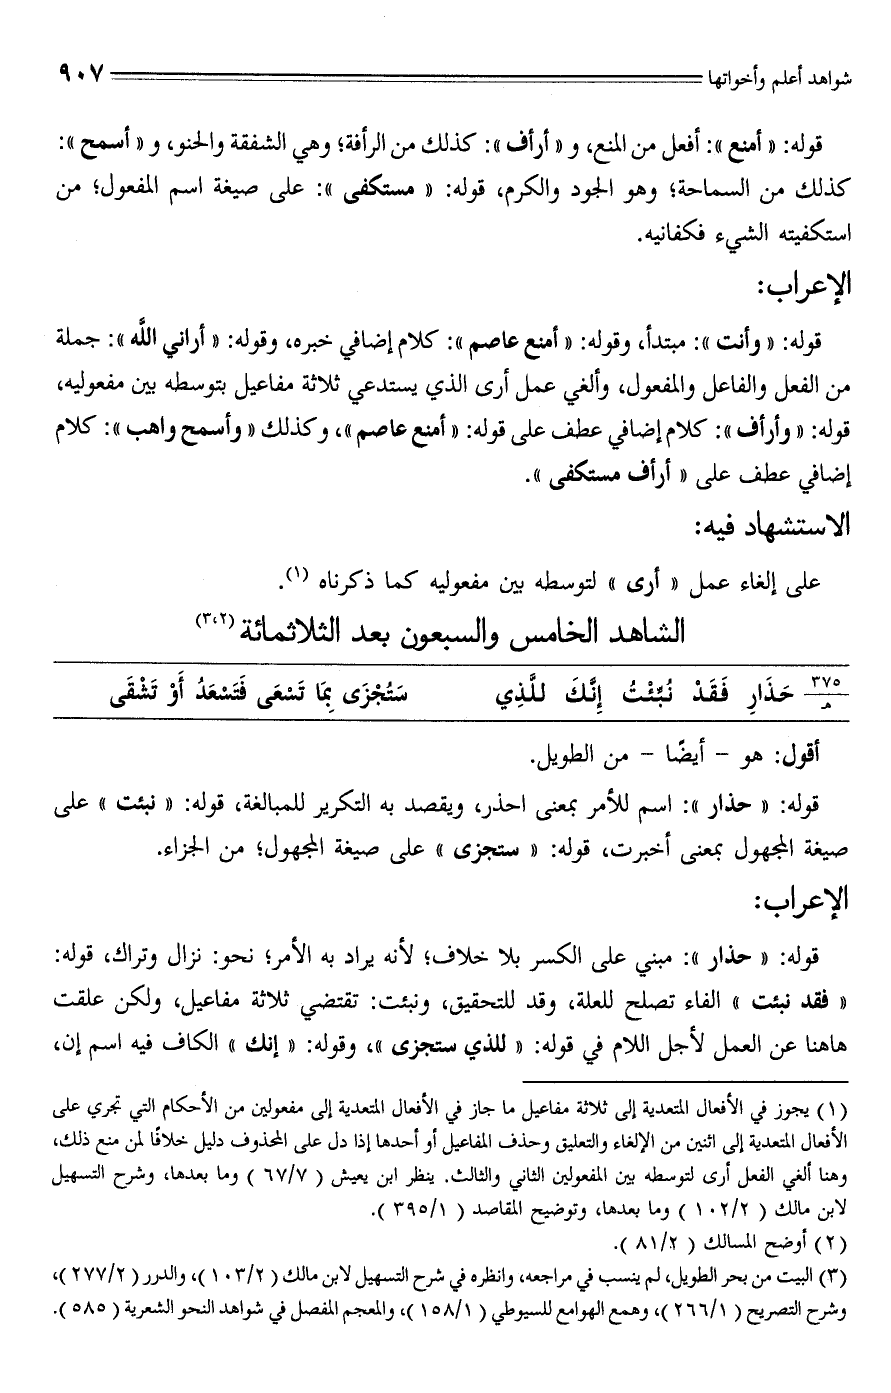 شواهد أعلم وأخواتها ٩٠٧
قوله: « أمنع »: أفعل من المنع، و « أرأف »: كذلك من الرأفة؛ وهي الشفقة والحنو، و « أسمح »:
كذلك من السماحة؛ وهو الجود والكرم، قوله: « مستكفى »: على صيغة اسم المفعول؛ من
استكفيته الشيء فكفانيه.
الإعراب:
قوله: « وأنت »: مبتدأ، وقوله: « أمنع عاصم »: كلام إضافي خبره، وقوله: « أراني اللَّه »: جملة
من الفعل والفاعل والمفعول، وألغي عمل أرى الذي يستدعي ثلاثة مفاعيل بتوسطه بين مفعوليه،
قوله: « وأرأف »: كلام إضافي عطف على قوله: « أمنع عاصم »، وكذلك « وأسمح واهب »: كلام
إضافي عطف على « أرأف مستكفى ».
الاستشهاد فيه:
على إلغاء عمل « أرى » لتوسطه بين مفعوليه كما ذكرناه (١).
الشاهد الخامس والسبعون بعد الثلاثمائة (٢،٣)
٣٧٥ هـ حَذَارِ فَقَدْ نُبِّئْتُ إِنَّكَ لَلَّذِي سَتُجْزَى بِمَا تَسْعَى فَتَسْعَدُ أَوْ تَشْقَى
أقول: هو – أيضًا – من الطويل.
قوله: « حذار »: اسم للأمر بمعنى احذر، ويقصد به التكرير للمبالغة، قوله: « نبئت » على
صيغة المجهول بمعنى أخبرت، قوله: « ستجزى » على صيغة المجهول؛ من الجزاء.
الإعراب:
قوله: « حذار »: مبني على الكسر بلا خلاف؛ لأنه يراد به الأمر؛ نحو: نزال وتراك، قوله:
« فقد نبئت » الفاء تصلح للعلة، وقد للتحقيق، ونبئت: تقتضي ثلاثة مفاعيل، ولكن علقت
هاهنا عن العمل لأجل اللام في قوله: « للذي ستجزى »، وقوله: « إنك » الكاف فيه اسم إن،
(١) يجوز في الأفعال المتعدية إلى ثلاثة مفاعيل ما جاز في الأفعال المتعدية إلى مفعولين من الأحكام التي تجري على
الأفعال المتعدية إلى اثنين من الإلغاء والتعليق وحذف المفاعيل أو أحدها إذا دل على المحذوف دليل خلافًا لمن منع ذلك،
وهنا ألغي الفعل أرى لتوسطه بين المفعولين الثاني والثالث. ينظر ابن يعيش ( ٦٧/٧ ) وما بعدها، وشرح التسهيل
لابن مالك ( ١٠٢/٢ ) وما بعدها، وتوضيح المقاصد ( ٣٩٥/١ ).
(٢) أوضح المسالك ( ٨١/٢ ).
(٣) البيت من بحر الطويل، لم ينسب في مراجعه، وانظره في شرح التسهيل لابن مالك ( ١٠٣/٢ )، والدرر ( ٢٧٧/٢ )،
وشرح التصريح ( ٢٦٦/١ )، وهمع الهوامع للسيوطي ( ١٥٨/١ )، والمعجم المفصل في شواهد النحو الشعرية ( ٥٨٥ ).